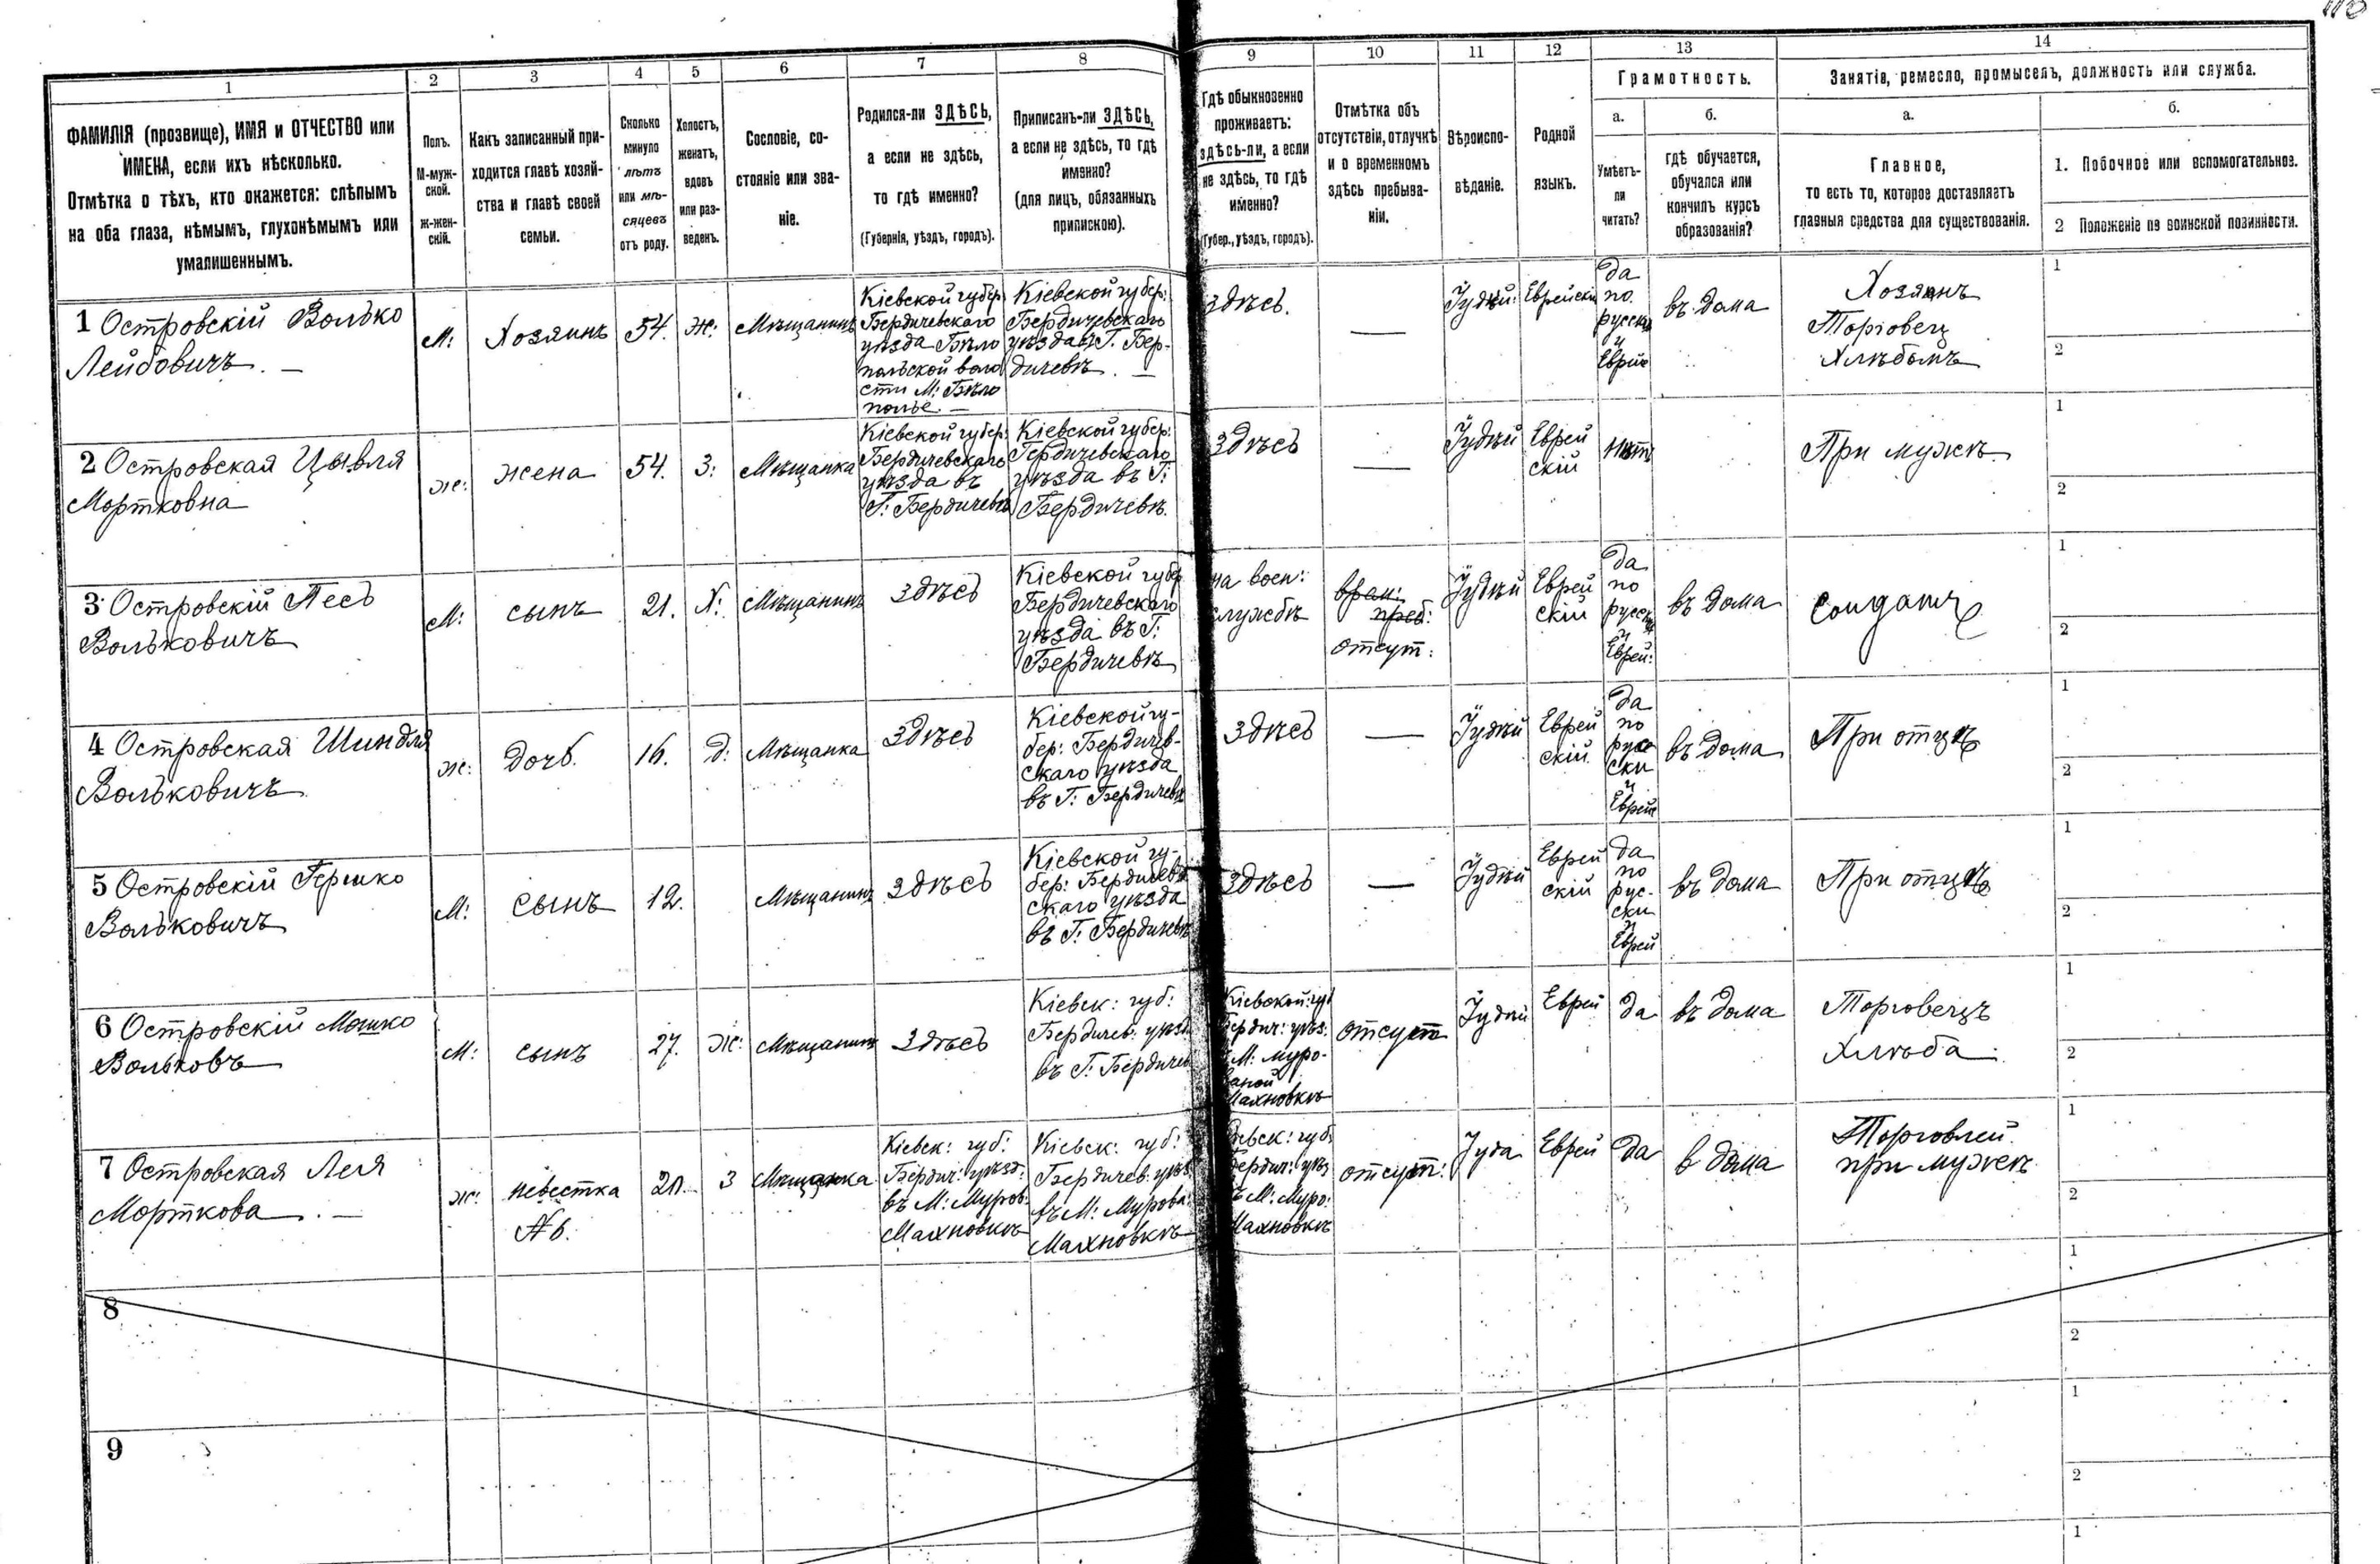 1 2 3 4 5 6 7 8 9 10 11 12 13 14
ФАМИЛІЯ (прозвище), ИМЯ и ОТЧЕСТВО или
ИМЕНА, если ихъ нѣсколько.
Отмѣтка о тѣхъ, кто окажется: слѣпымъ
на оба глаза, нѣмымъ, глухонѣмымъ или
умалишеннымъ.
Полъ.
М-муж-
ской.
ж-жен-
скій.
Какъ записанный при-
ходится главѣ хозяй-
ства и главѣ своей
семьи.
Сколько
минуло
лѣтъ
или мѣ-
сяцевъ
отъ роду.
Холостъ,
женатъ,
вдовъ
или раз-
веденъ.
Сословіе, со-
стояніе или зва-
ніе.
Родился-ли ЗДѢСЬ,
а если не здѣсь,
то гдѣ именно?
(Губернія, уѣздъ, городъ).
Приписанъ-ли ЗДѢСЬ,
а если не здѣсь, то гдѣ
именно?
(для лицъ, обязанныхъ
припискою).
Гдѣ обыкновенно
проживаетъ:
здѣсь-ли, а если
не здѣсь, то гдѣ
именно?
(Губер., уѣздъ, городъ).
Отмѣтка объ
отсутствіи, отлучкѣ
и о временномъ
здѣсь пребыва-
ніи.
Вѣроиспо-
вѣданіе.
Родной
языкъ.
Грамотность.
а.
Умѣетъ-
ли
читать?
б.
гдѣ обучается,
обучался или
кончилъ курсъ
образованія?
Занятіе, ремесло, промыселъ, должность или служба.
а.
Главное,
то есть то, которое доставляетъ
главныя средства для существованія.
б.
1. Побочное или вспомогательное.
2 Положеніе по воинской повинности.
1 Островскій Волько
Лейбовичъ. —
М:
Хозяинъ
54.
Ж:
Мѣщанинъ
Кіевской губер:
Бердичевскаго
уѣзда Бѣло
польской воло
сти М: Бѣло
полье. —
Кіевской губер:
Бердичевскаго
уѣзда въ Г. Бер-
дичевѣ. —
здѣсь.
—
Іудѣй:
Еврейскій
да
по
русски
и
Еврей
въ дома
Хозяинъ
Торговецъ
Хлѣбомъ
1
2
2 Островская Цывля
Мортковна
ж:
жена
54.
З:
Мѣщанка
Кіевской губер:
Бердичевскаго
уѣзда въ
Г: Бердичевѣ
Кіевской губер:
Бердичевскаго
уѣзда въ Г:
Бердичевѣ.
здѣсь
—
Іудѣй
Еврей
скій
нѣтъ
При мужѣ
1
2
3 Островскій Песь
Вольковичъ
М:
сынъ
21.
Х:
Мѣщанинъ
здѣсь
Кіевской губер
Бердичевскаго
уѣзда въ Г:
Бердичевѣ
на воен:
службѣ
врем:
преб:
отсут:
Іудѣй
Еврей
скій
да
по
русски
и
Еврей:
въ дома
Солдатъ
1
2
4 Островская Шиндля
Вольковичъ
ж:
Дочь.
16.
д:
Мѣщанка
здѣсь
Кіевской гу-
бер: Бердичев-
скаго уѣзда
въ Г: Бердичевѣ
здѣсь
—
Іудѣй
Еврей
скій
да
по
рус
ски
и
Еврей
въ дома
При отцѣ
1
2
5 Островскій Гершко
Вольковичъ
М:
сынъ
12.
Мѣщанинъ
здѣсь
Кіевской гу-
бер: Бердичев
скаго уѣзда
въ Г: Бердичевѣ
здѣсь
—
Іудѣй
Еврей
скій
да
по
рус-
ски
и
Еврей
въ дома
При отцѣ
1
2
6 Островскій Мошко
Вольковъ
М:
сынъ
27.
Ж:
Мѣщанинъ
здѣсь
Кіевск: губ:
Бердичев: уѣзд
въ Г: Бердичев
Кіевской: губ
Бердич: уѣз:
въ М: муро-
ваной
Махновкѣ
отсут
Іудѣй
Еврей
да
въ дома
Торговецъ
Хлѣба
1
2
7 Островская Лея
Морткова. —
ж:
невестка
№ 6.
20.
З
Мѣщанка
Кіевск: губ:
Бердич: уѣзд:
въ М: Муров:
Махновкѣ
Кіевск: губ:
Бердичев: уѣз
въ М: Мурова:
Махновкѣ
Кіевск: губ
Бердич: уѣз
въ М: Муро:
Махновкѣ
отсут:
Іуда
Еврей
да
в дома
Торговлей
при мужѣ
1
2
8
1
2
9
1
2
1